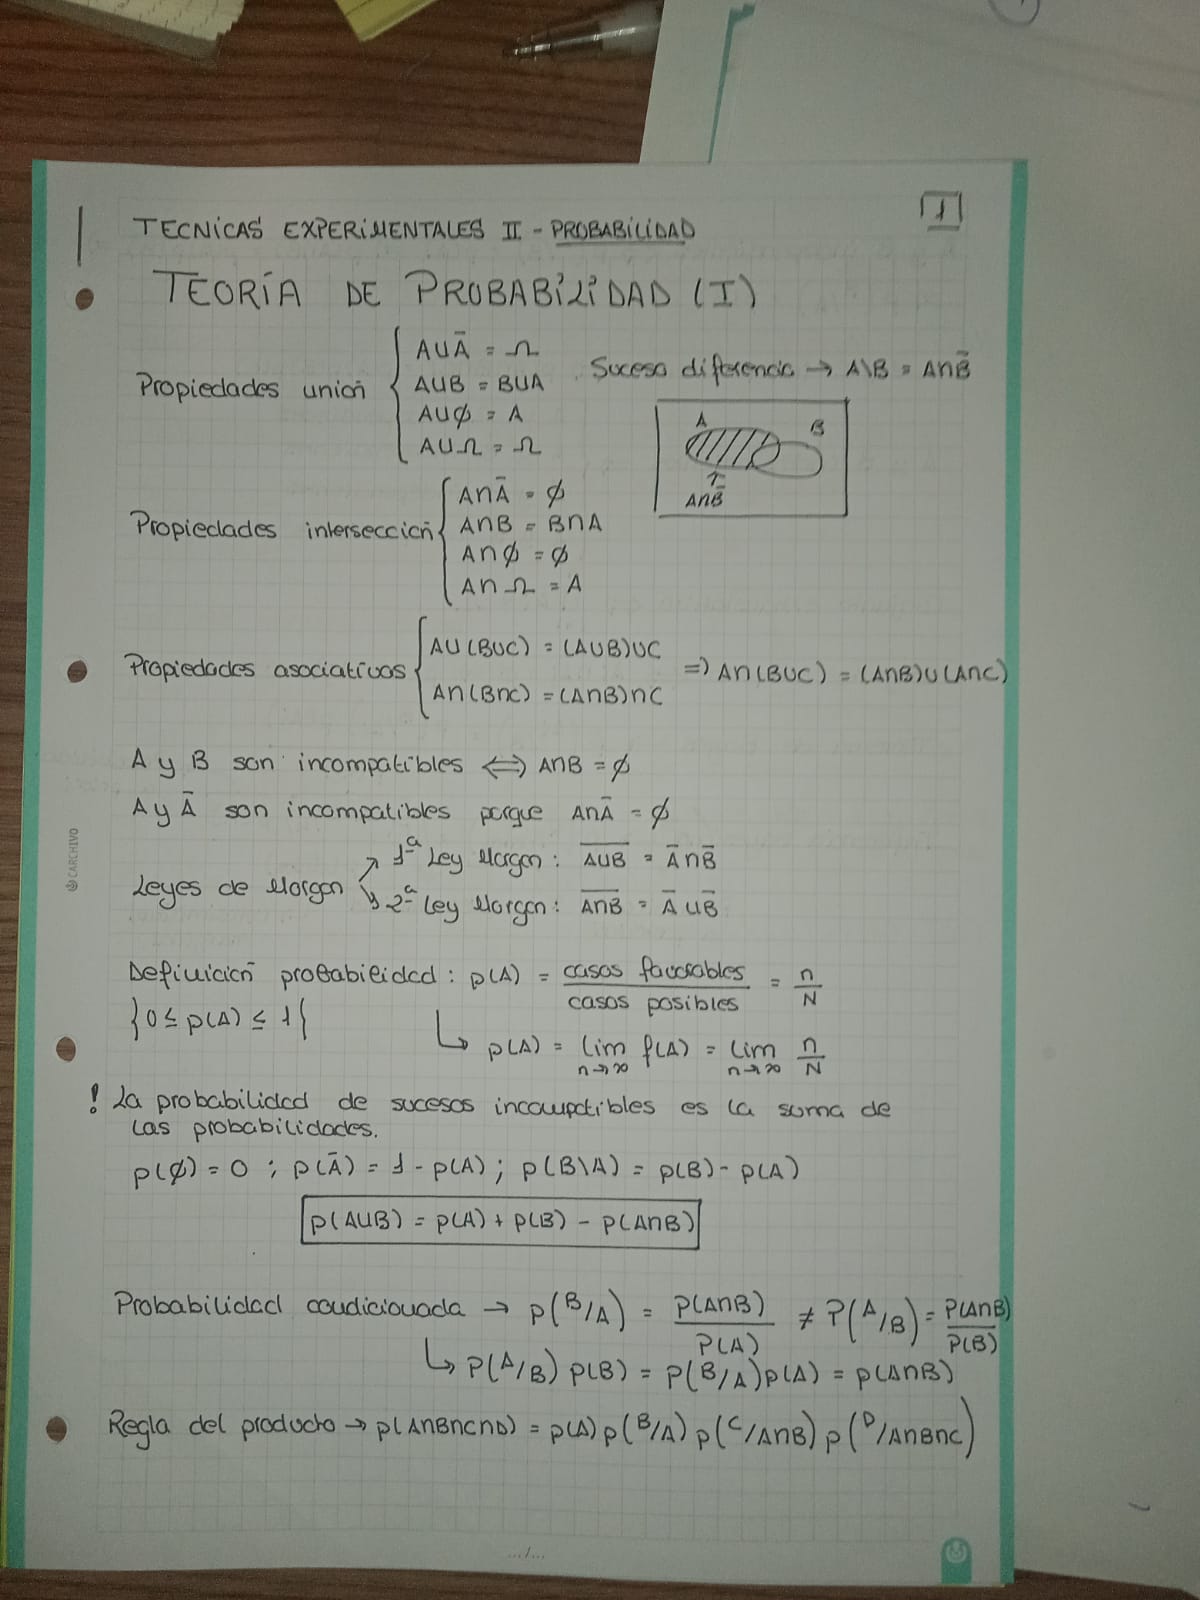 1
TECNICAS EXPERIMENTALES II - PROBABILIDAD
TEORÍA DE PROBABILIDAD (I)
Propiedades unión { A∪Ā = Ω
A∪B = B∪A
A∪∅ = A
A∪Ω = Ω
Suceso diferencia → A\B = A∩B̄
A B
↑
A∩B̄
Propiedades intersección { A∩Ā = ∅
A∩B = B∩A
A∩∅ = ∅
A∩Ω = A
Propiedades asociativas { A∪(B∪C) = (A∪B)∪C
A∩(B∩C) = (A∩B)∩C
=> A∩(B∪C) = (A∩B)∪(A∩C)
A y B son incompatibles <=> A∩B = ∅
A y Ā son incompatibles porque A∩Ā = ∅
Leyes de Morgan
↗ 1ª Ley Morgan: \overline{A∪B} = Ā∩B̄
↘ 2ª Ley Morgan: \overline{A∩B} = Ā∪B̄
Definición probabilidad: p(A) = casos favorables / casos posibles = n/N
}0 ≤ p(A) ≤ 1{
↳ p(A) = lim n→∞ f(A) = lim n→∞ n/N
! La probabilidad de sucesos incompatibles es la suma de
las probabilidades.
p(∅) = 0 ; p(Ā) = 1 - p(A) ; p(B\A) = p(B) - p(A)
p(A∪B) = p(A) + p(B) - p(A∩B)
Probabilidad condicionada → p(B/A) = p(A∩B)/p(A) ≠ P(A/B) = P(A∩B)/P(B)
↳ p(A/B) p(B) = p(B/A) p(A) = p(A∩B)
Regla del producto → p(A∩B∩C∩D) = p(A) p(B/A) p(C/A∩B) p(D/A∩B∩C)
CARCHIVO
.../...